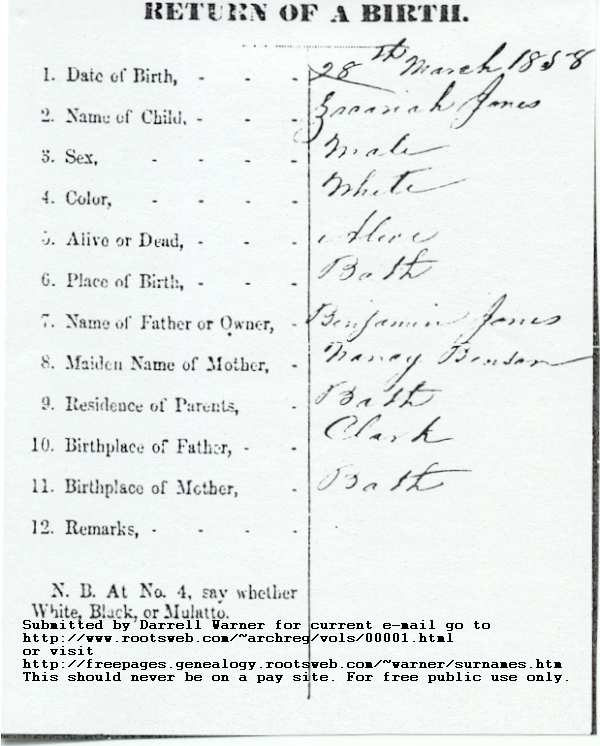 RETURN OF A BIRTH.
1. Date of Birth, - - - 28th March 1858
2. Name of Child, - - - Jones
3. Sex, - - - - Male
4. Color, - - - - White
5. Alive or Dead, - - - Alive
6. Place of Birth, - - - Bath
7. Name of Father or Owner, - Benjamin Jones
8. Maiden Name of Mother, - Nancy Benson
9. Residence of Parents, - Bath
10. Birthplace of Father, - - Clark
11. Birthplace of Mother, - Bath
12. Remarks, - - - -
N. B. At No. 4, say whether
White, Black, or Mulatto.
Submitted by Darrell Warner for current e-mail go to
http://www.rootsweb.com/~archreg/vols/00001.html
or visit
http://freepages.genealogy.rootsweb.com/~warner/surnames.htm
This should never be on a pay site. For free public use only.